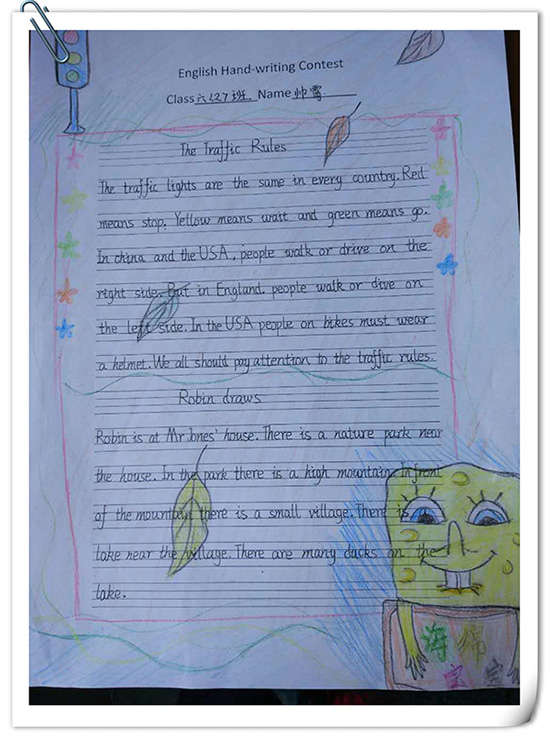 English Hand-writing Contest
Class 六(27)班 Name 帅雪
The Traffic Rules
The traffic lights are the same in every country. Red
means stop. Yellow means wait and green means go.
In china and the USA, people walk or drive on the
right side. But in England. people walk or dive on
the left side. In the USA people on bikes must wear
a helmet. We all should pay attention to the traffic rules.
Robin draws
Robin is at Mr Jones' house. There is a nature park near
the house. In the park there is a high mountain. In front
of the mountain there is a small village. There is
lake near the village. There are many ducks on the
lake.
海绵
宝宝